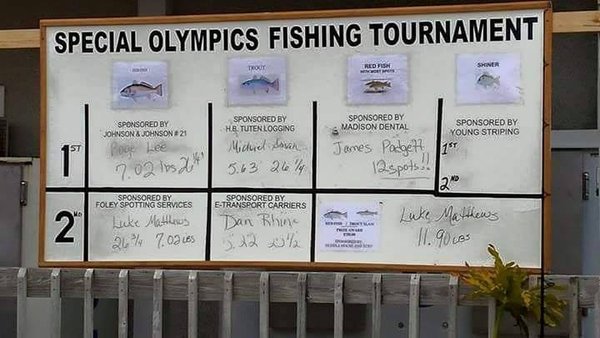 SPECIAL OLYMPICS FISHING TOURNAMENT
TROUT
RED FISH
WITH MOST SPOTS
SHINER
1ST
SPONSORED BY
JOHNSON & JOHNSON # 21
Lee
7.02 lbs
SPONSORED BY
H.B. TUTEN LOGGING
Michael
5.63 26 1/4
SPONSORED BY
MADISON DENTAL
James Padgett
12 spots!!
SPONSORED BY
YOUNG STRIPING
1ST
2ND
2ND
SPONSORED BY
FOLEY SPOTTING SERVICES
Luke Matthews
26 3/4 7.02 LBS
SPONSORED BY
E-TRANSPORT CARRIERS
Dan Rhine
RED FISH / TROUT SLAM
SPONSORED BY
Luke Matthews
11.90 LBS